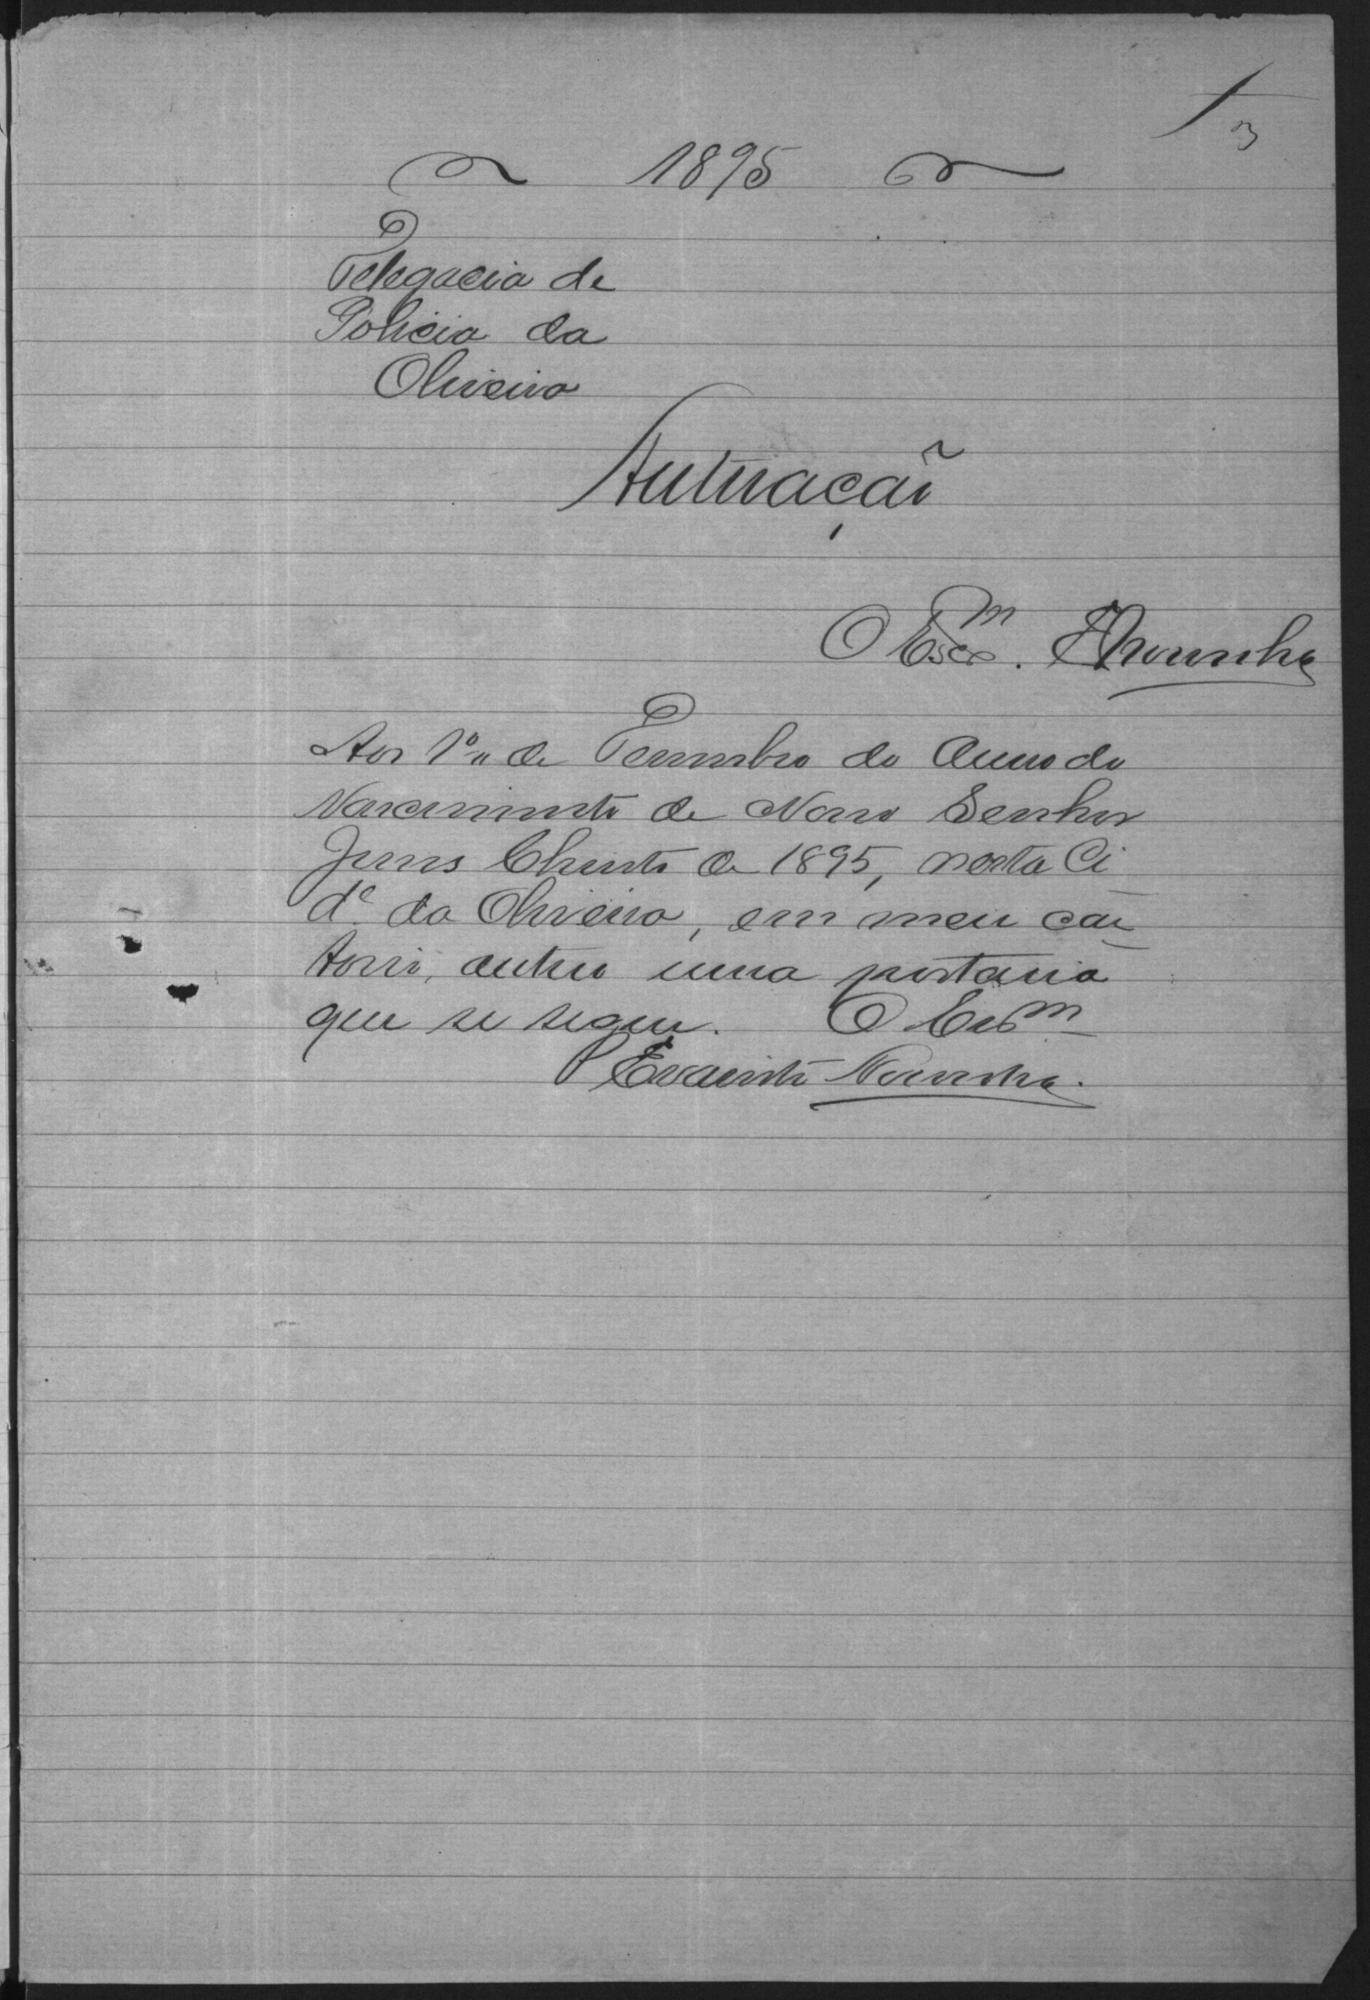 1
3
1895
Delegacia de
Policia da
Oliveira
Autuação
O Escm. ENoronha
Aos 1º de Dezembro do Anno do
Nascimento de Nosso Senhor
Jesus Christo de 1895, nesta Ci
de da Oliveira, em meu car
torio, autuo uma portaria
que se segue. O Escm
Evaristo Noronha.